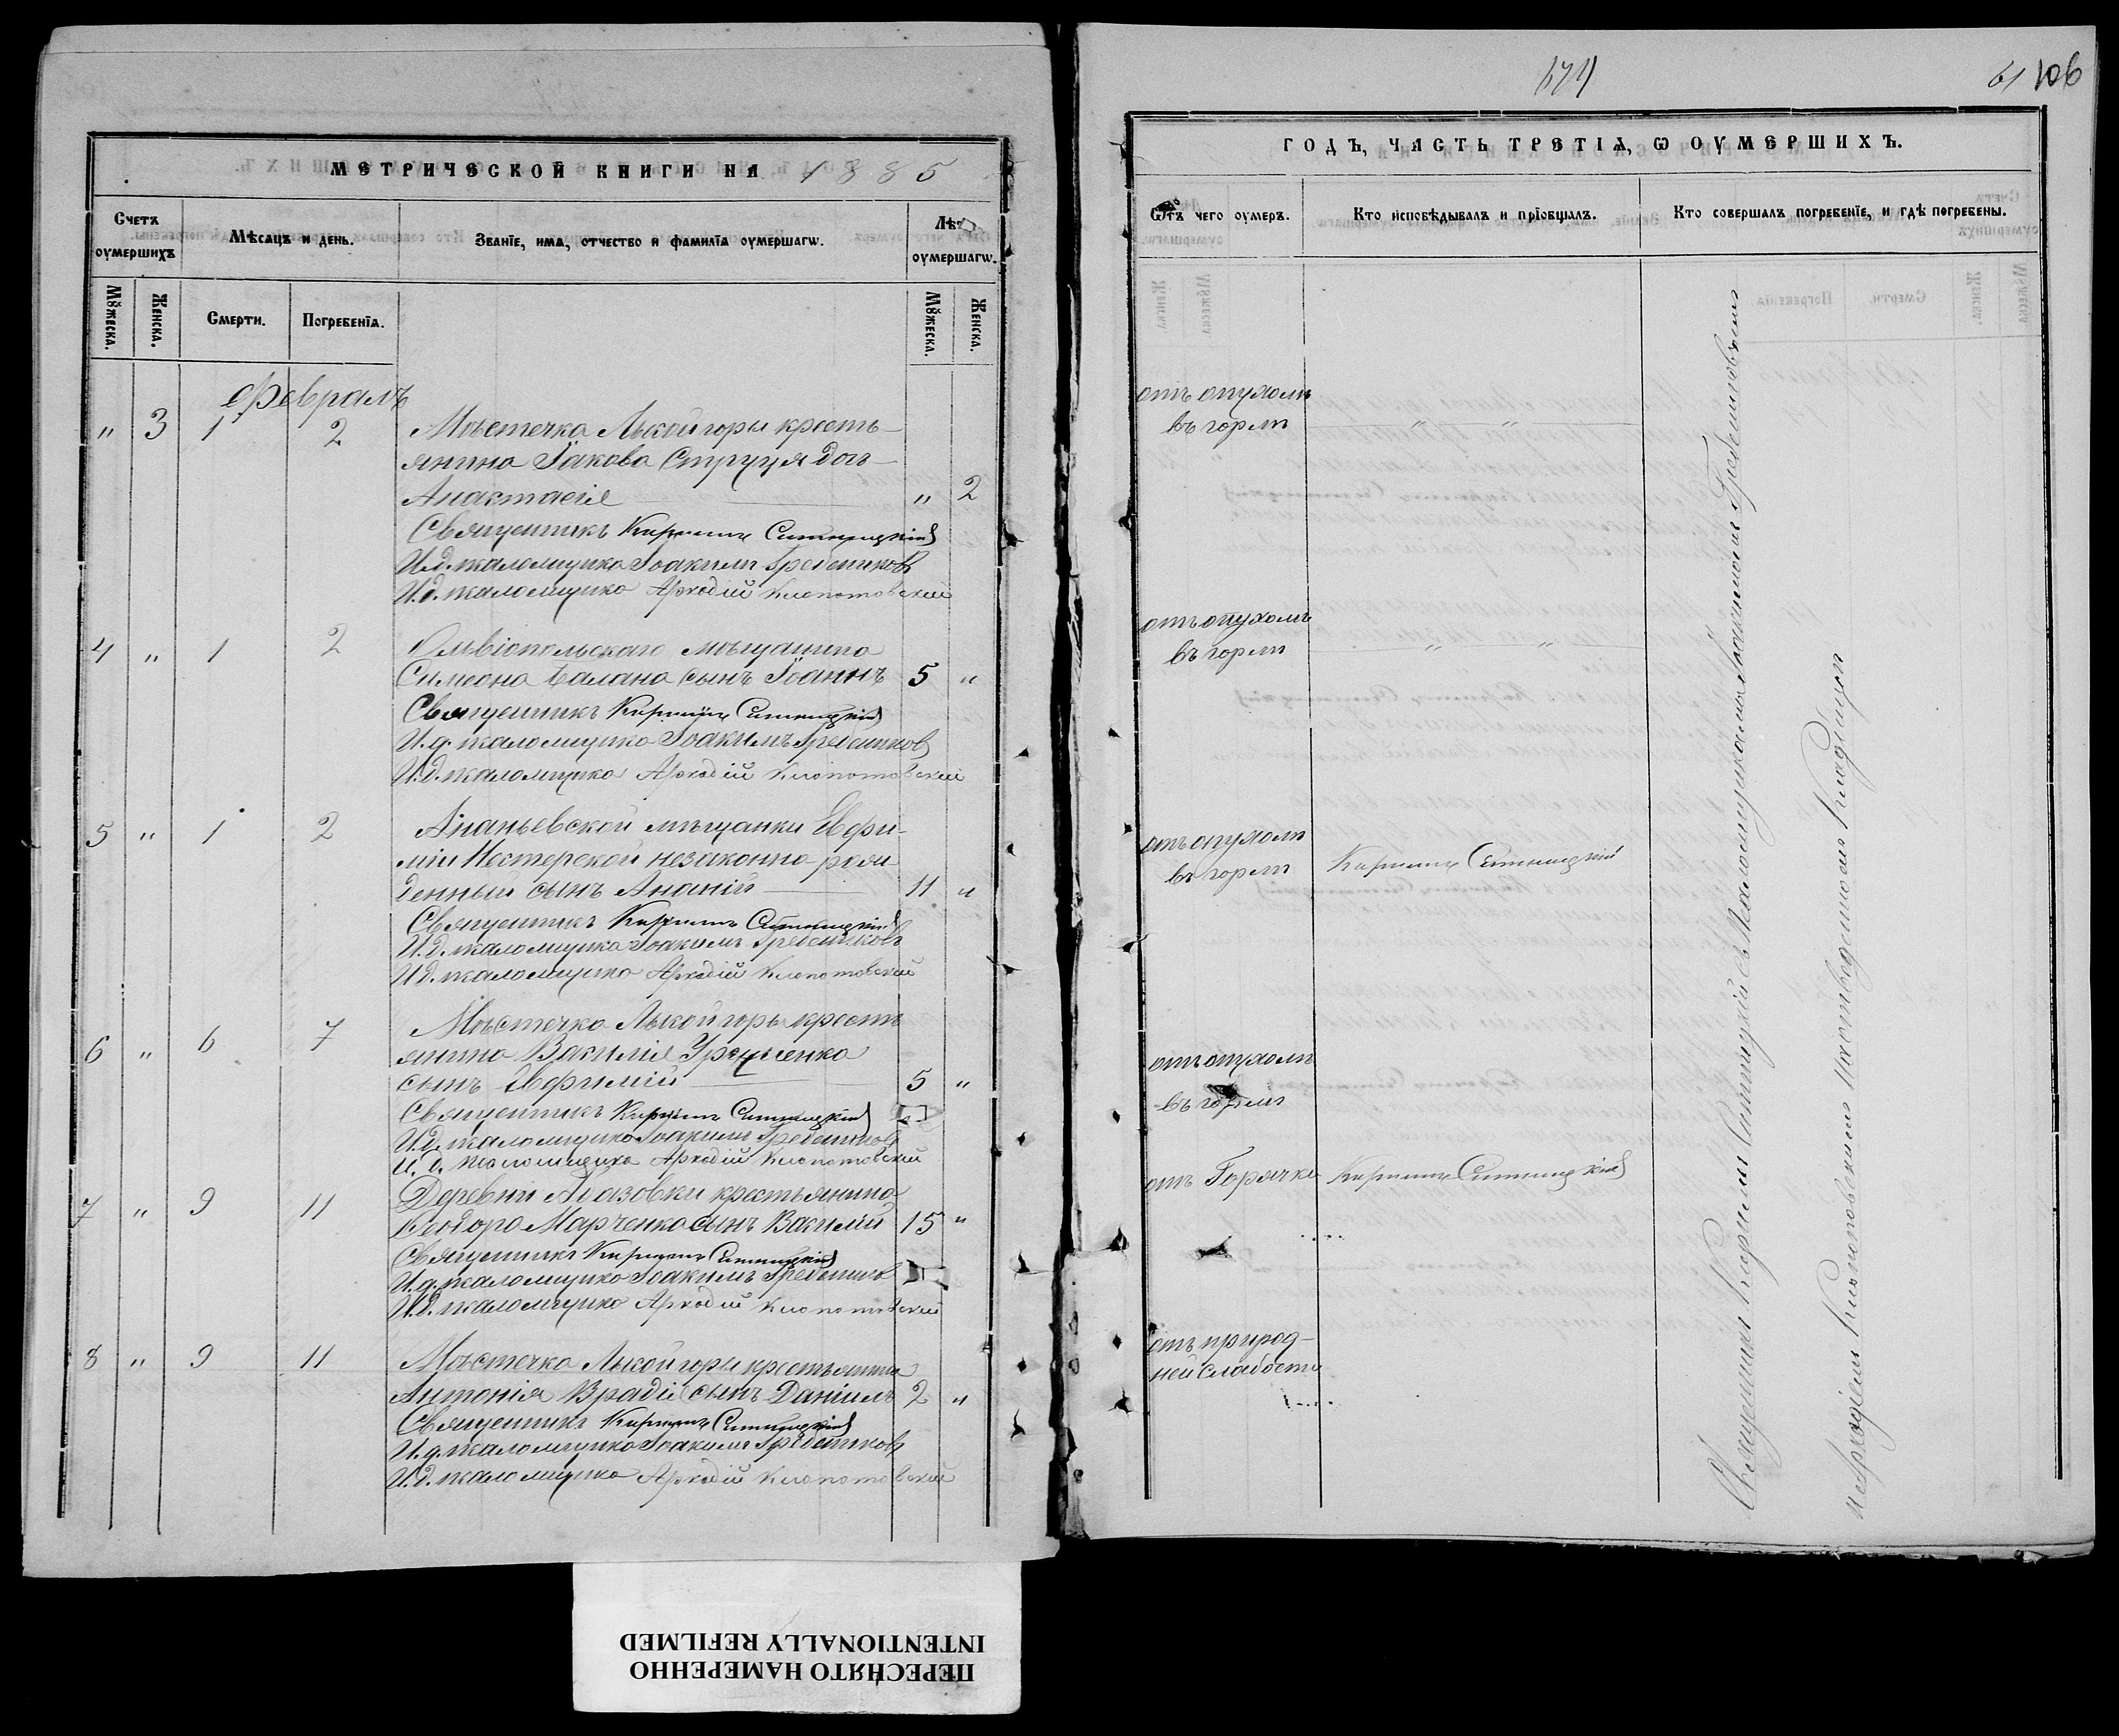 МЕТРИЧЕСКОЙ КНИГИ НА 1885
Счетъ оумершихъ
Мѣсяцъ и день.
Званїе, има, отчество и фамилїа оумершагѡ.
Лѣ
оумершагѡ.
Мꙋжеска.
Женска.
Смерти.
Погребенїа.
Мꙋжеска.
Женска.
Февраль
" 3 1 2 Мѣстечка Лысой горы кресть-
янина Іакова дочь
Анастасія " 2
Священникъ Кириллъ Ситницкій
И.д. псаломщика Іоакимъ Гребенниковъ
И.д. псаломщика Аркадій Клопотовскій
4 " 1 2 Ольвіопольскаго мѣщанина
Симеона Балана сынъ Іоаннъ 5 "
Священникъ Кириллъ Ситницкій
И.д. псаломщика Іоакимъ Гребенниковъ
И.д. псаломщика Аркадій Клопотовскій
5 " 1 2 Ананьевской мѣщанки Евфи-
міи Нестерской незаконно рож
денный сынъ Ананій 11 "
Священникъ Кириллъ Ситницкій
И.д. псаломщика Іоакимъ Гребенниковъ
И.д. псаломщика Аркадій Клопотовскій
6 " 6 7 Мѣстечка Лысой горы кресть
янина Василія
сынъ Евфимій 5 "
Священникъ Кириллъ Ситницкій
И.д. псаломщика Іоакимъ Гребенниковъ
И.д. псаломщика Аркадій Клопотовскій
7 " 9 11 Деревни крестьянина
Ѳеодора Марченка сынъ Василій 15 "
Священникъ Кириллъ Ситницкій
И.д. псаломщика Іоакимъ Гребенниковъ
И.д. псаломщика Аркадій Клопотовскій
8 " 9 11 Мѣстечка Лысой горы крестьянина
Антонія Вради сынъ Даніилъ 2 "
Священникъ Кириллъ Ситницкій
И.д. псаломщика Іоакимъ Гребенниковъ
И.д. псаломщика Аркадій Клопотовскій
61 106
ГОДЪ, ЧАСТЬ ТРЕТІѦ, Ѡ ОУМЕРШИХЪ.
Ѿ чего оумеръ.
Кто исповѣдывалъ и прїобщалъ.
Кто совершалъ погребенїе, и гдѣ погребены.
отъ опухоли
въ горлѣ " "
отъ опухоли
въ горлѣ " "
отъ опухоли
въ горлѣ Кириллъ Ситницкій
отъ опухоли
въ горлѣ
отъ Горячки Кириллъ Ситницкій
отъ природ-
ной слабости
Священникъ Кириллъ Ситницкій съ Псаломщиками Іоакимомъ Гребенниковымъ
и Аркадіемъ Клопотовскимъ на приходскомъ кладбищѣ
ПЕРЕСНЯТО НАМЕРЕННО
INTENTIONALLY REFILMED